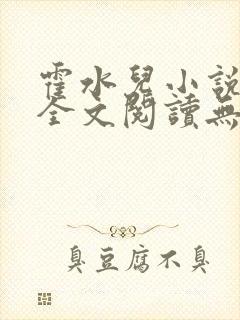 霍水兒小說
全文閱讀無
臭豆腐不臭